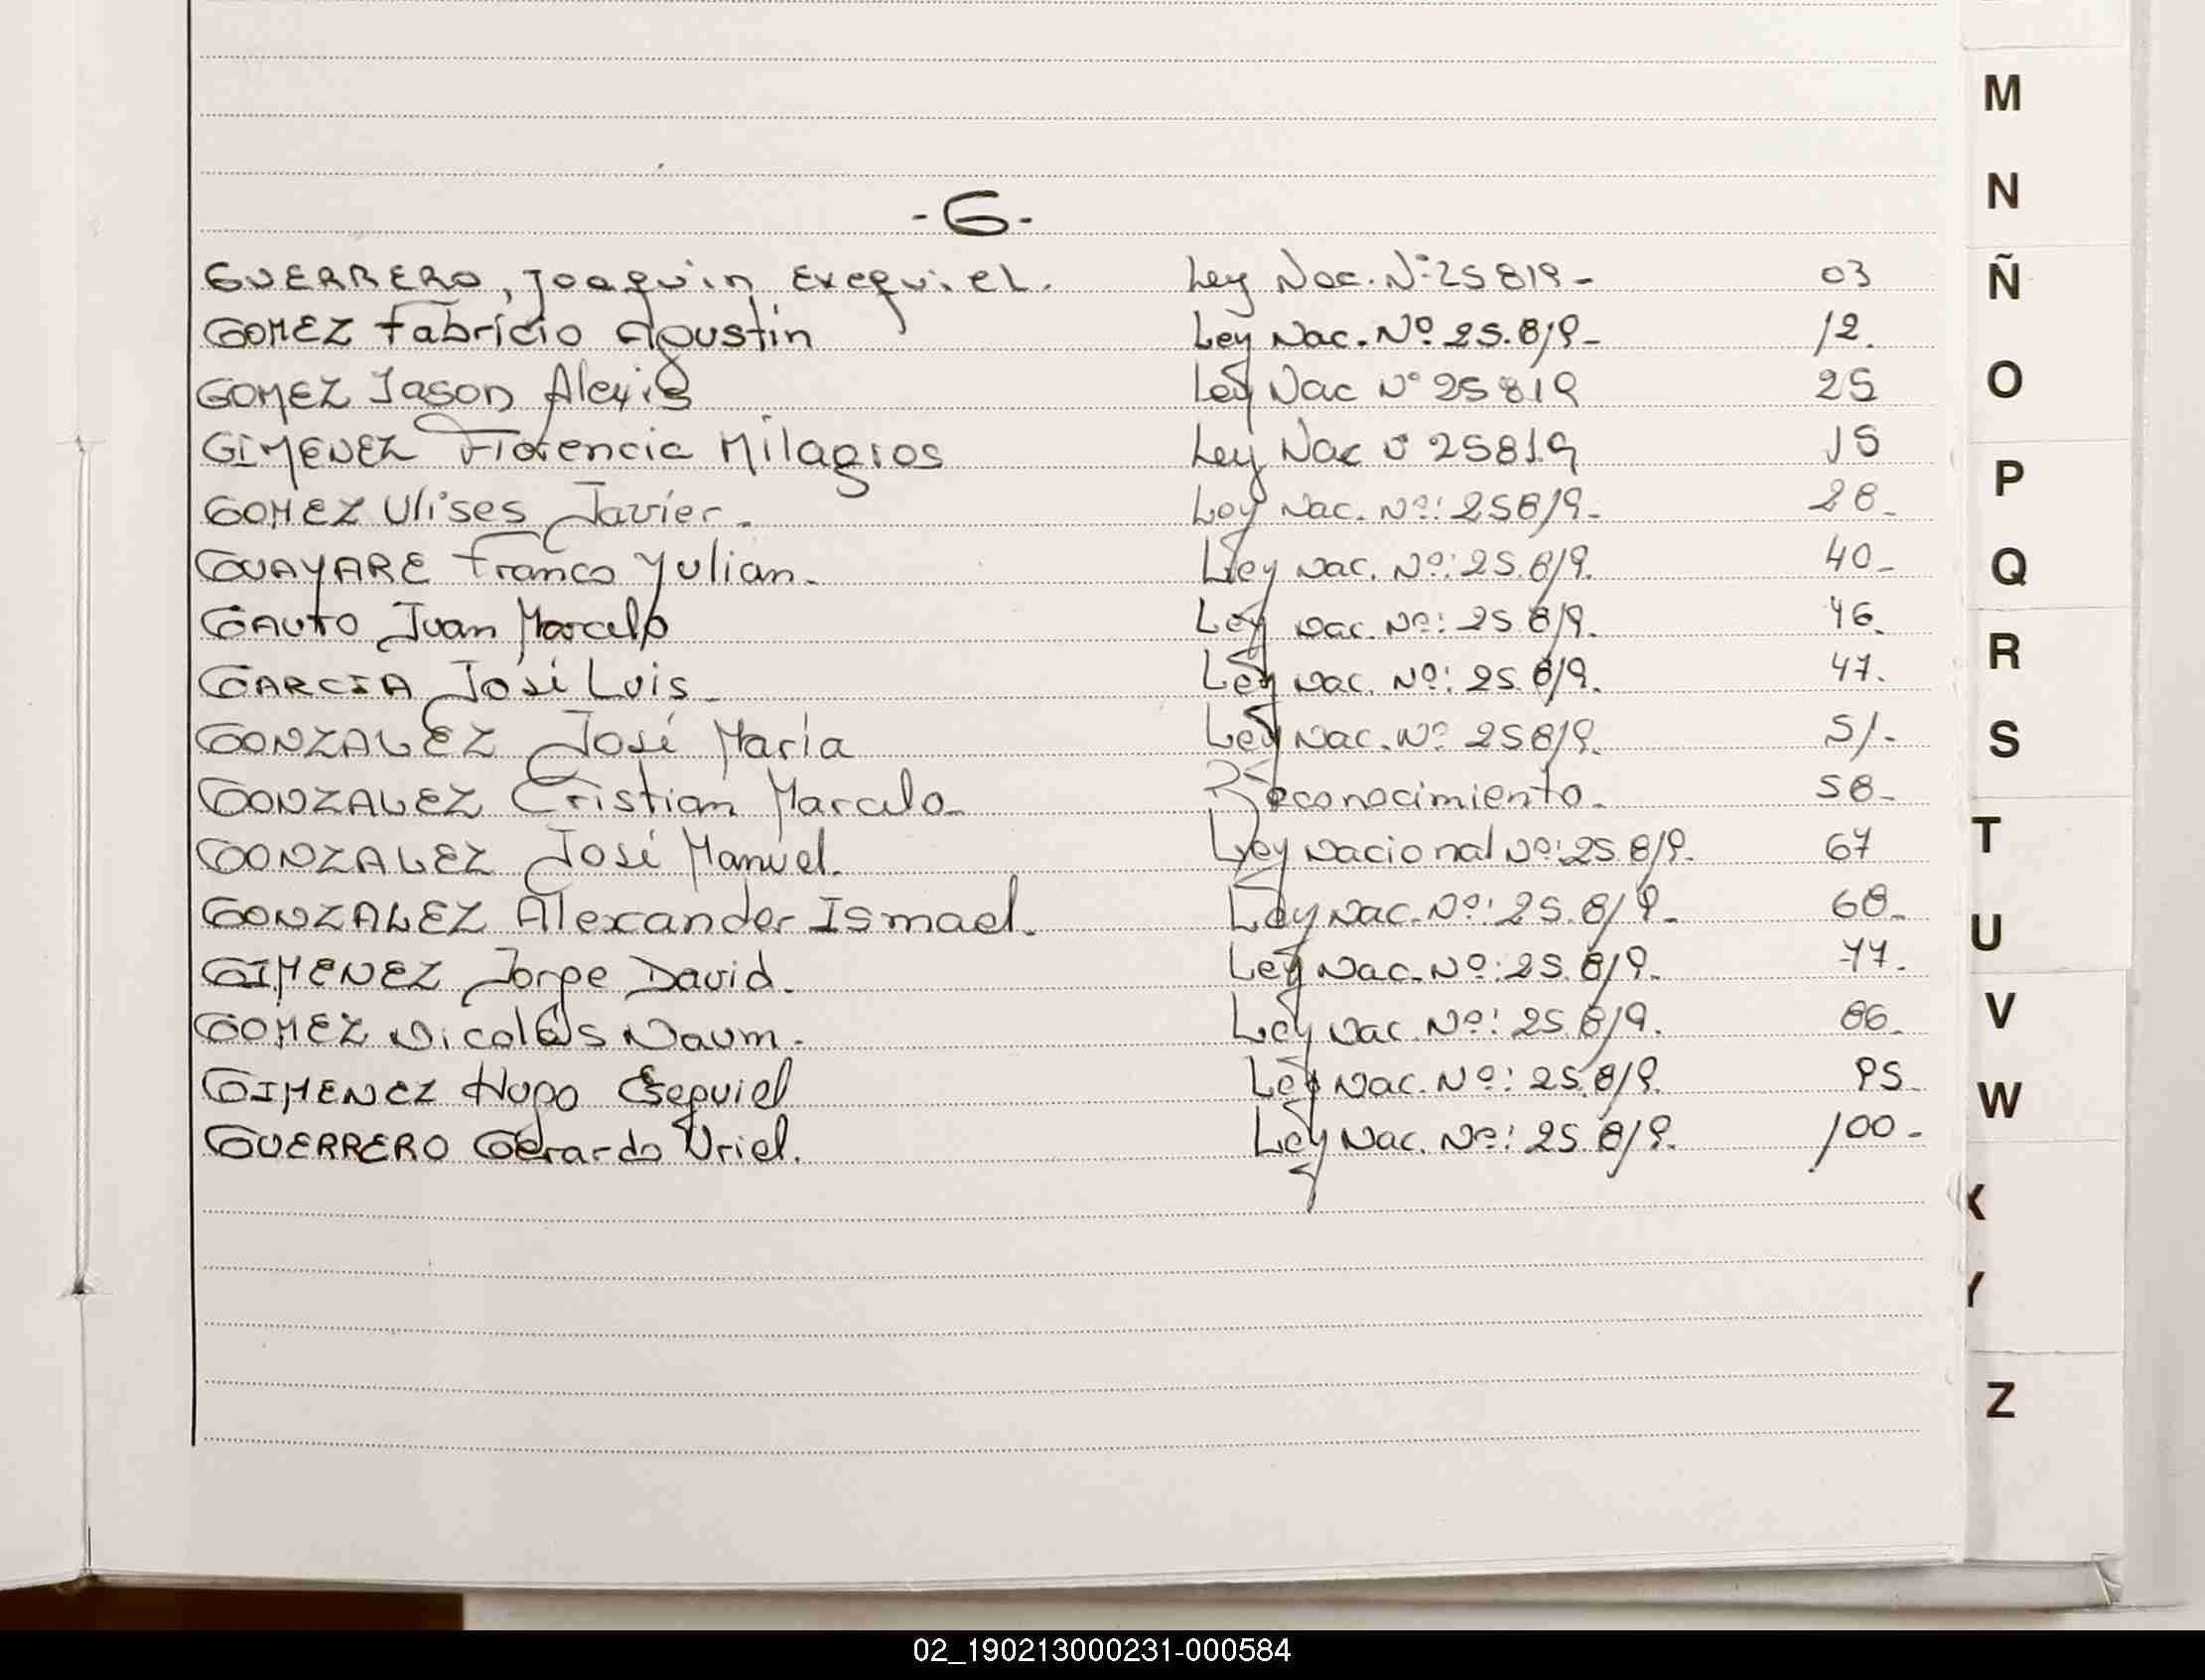 -G-
GUERRERO, Joaquin Exequiel. Ley Nac. N° 25819- 03
GOMEZ Fabricio Agustín Ley Nac. Nº 25.819- 12.
GOMEZ Jason Alexis Ley Nac N° 25819 25
GIMENEZ Florencia Milagros Ley Nac N° 25819 15
GOMEZ Ulises Javier. Ley Nac. Nº: 25819- 28-
GUAYARE Franco Yulian. Ley Nac. Nº: 25.819. 40-
GAUTO Juan Marcelo Ley Nac. Nº: 25.819. 46.
GARCIA José Luis- Ley Nac. Nº: 25.819. 47.
GONZALEZ José María Ley Nac. Nº 25819. 51.-
GONZALEZ Cristian Marcelo- Reconocimiento. 58-
GONZALEZ José Manuel. Ley Nacional Nº: 25.819. 67
GONZALEZ Alexander Ismael. Ley Nac. Nº: 25.819- 68-
GIMENEZ Jorge David. Ley Nac. Nº: 25.819- 77.
GOMEZ Nicolás Naum. Ley Nac. Nº: 25.819. 86-
GIMENEZ Hugo Esequiel Ley Nac. Nº: 25.819. 95-
GUERRERO Gerardo Uriel. Ley Nac. Nº: 25.819. 100-
M
N
Ñ
O
P
Q
R
S
T
U
V
W
X
Y
Z
02_190213000231-000584